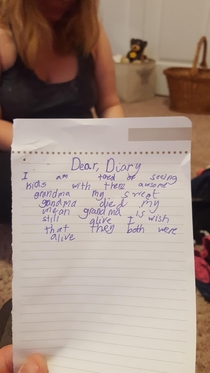 Dear, Diary
I am tored of seeing
kids with there awsome
grandma my sweet
gandma died my
mean grandma is
still alive I wish
that then both were
alive